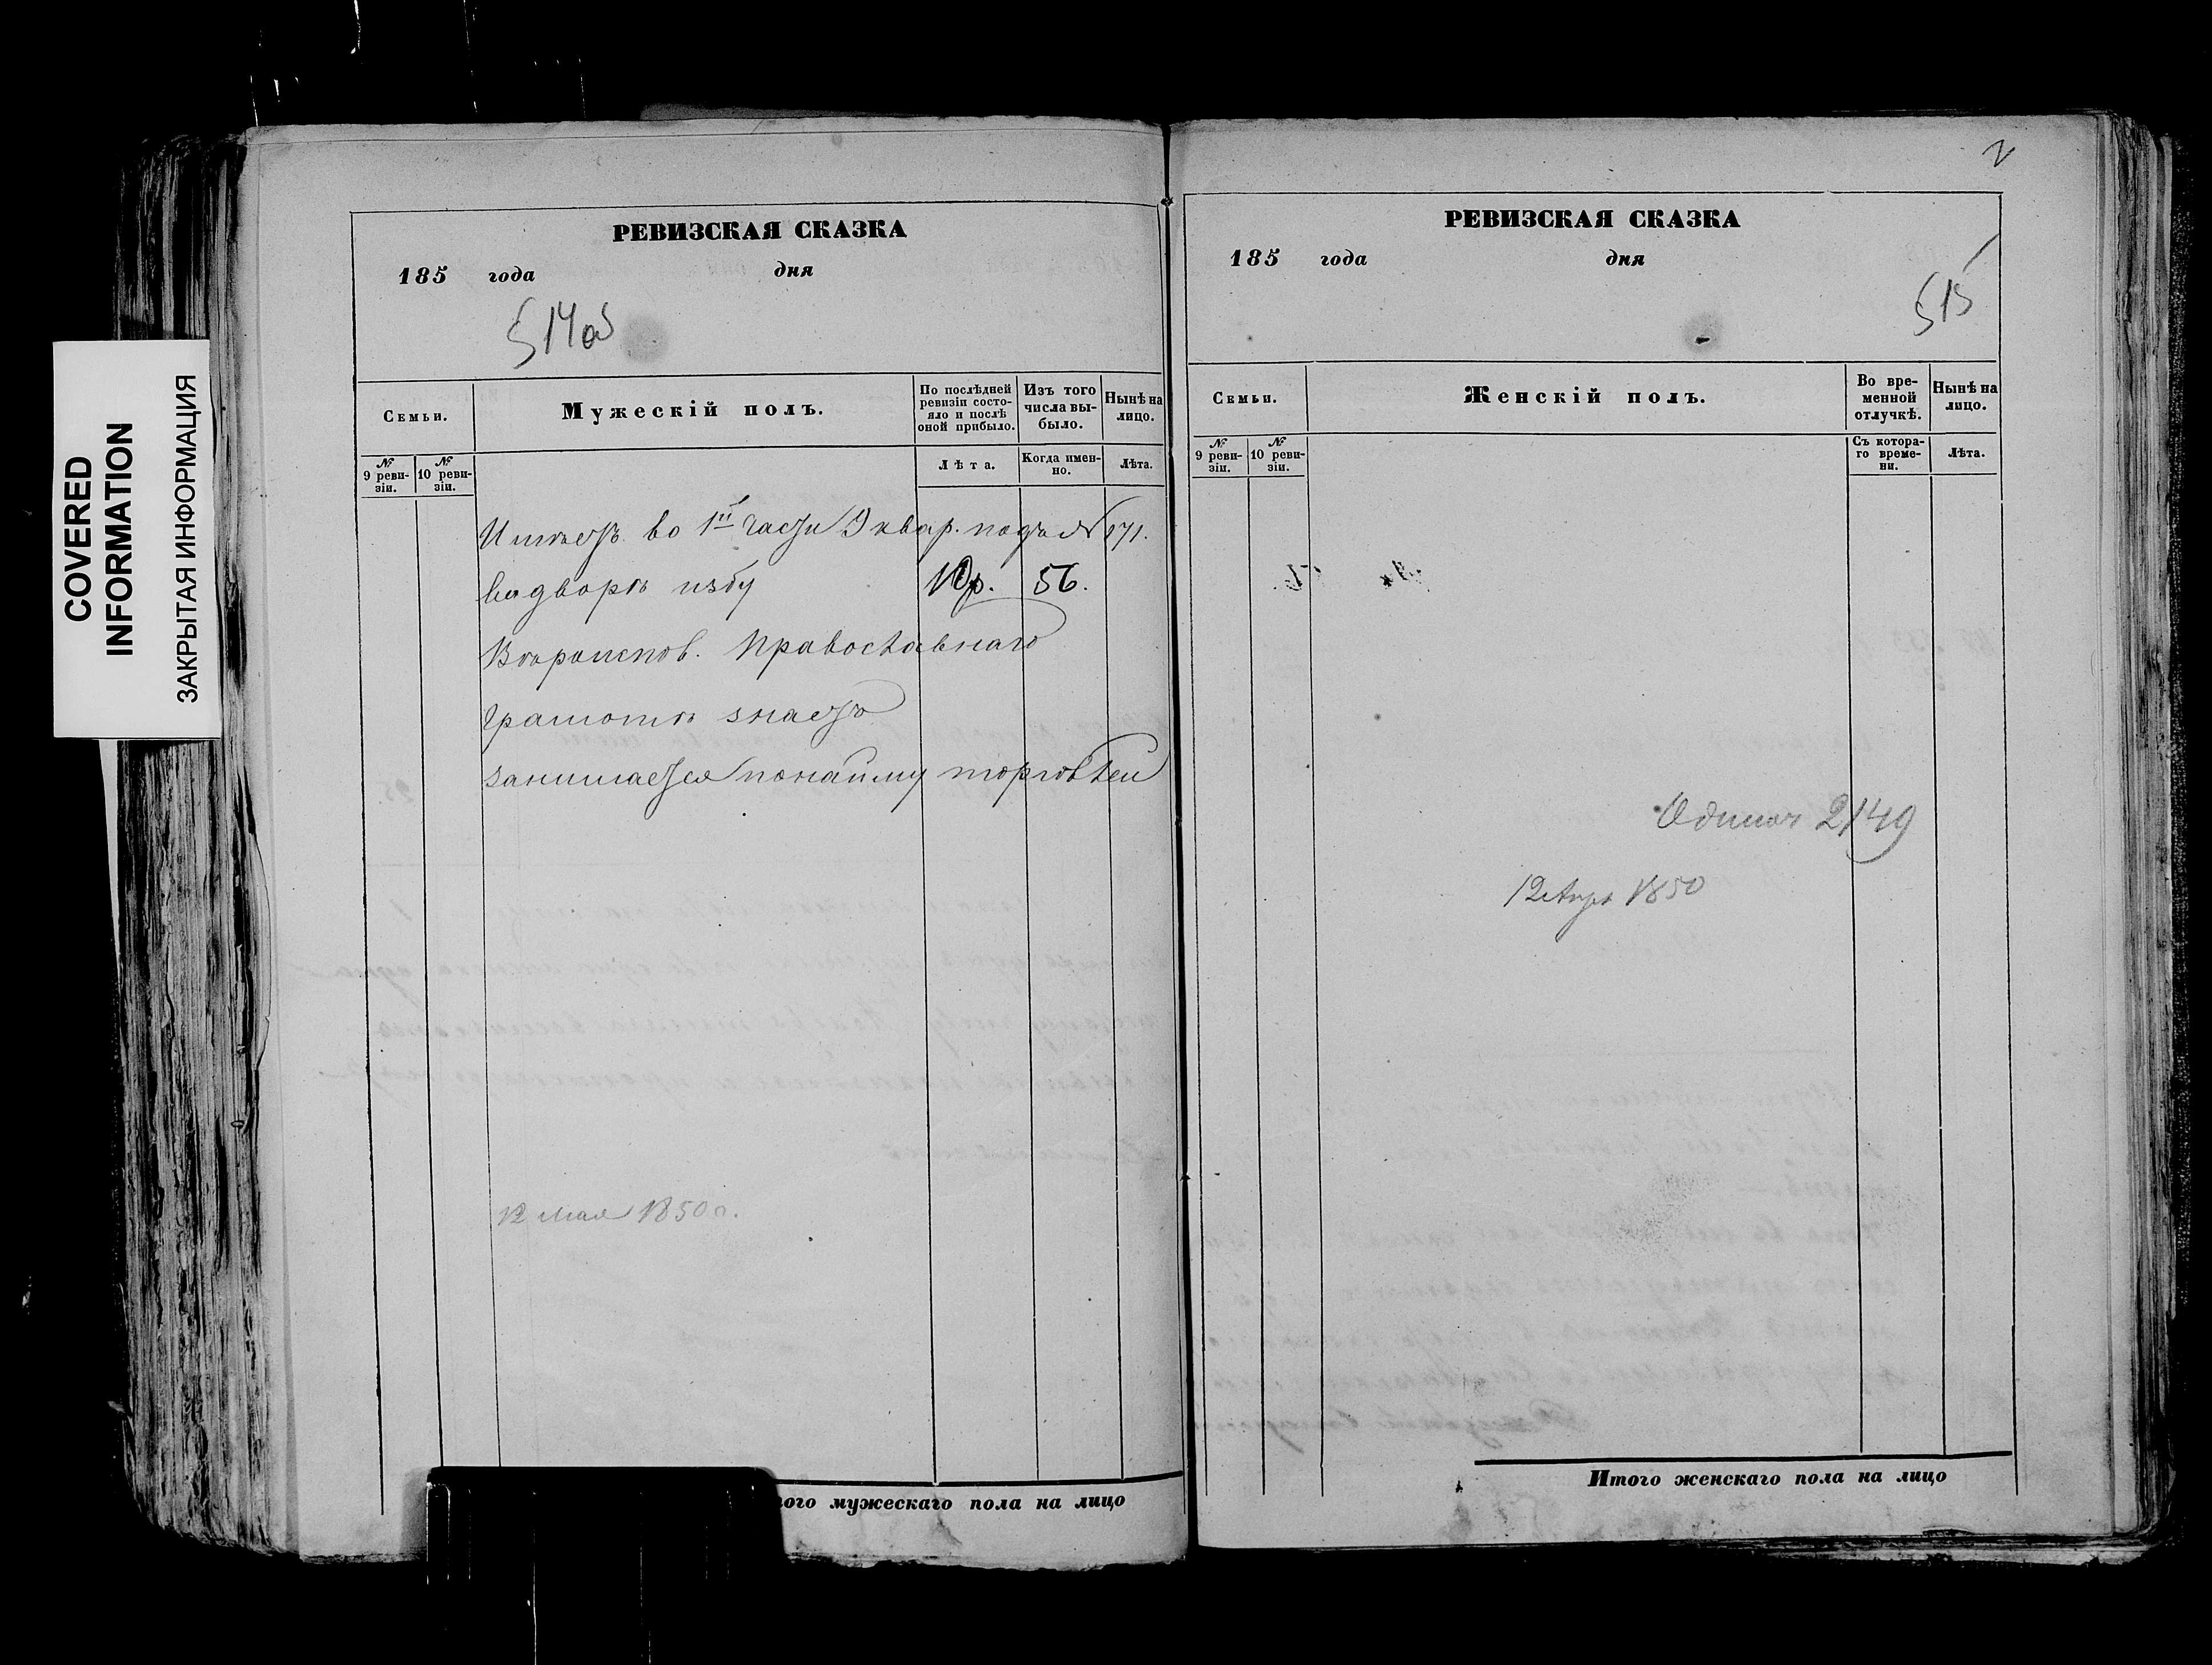 COVERED
INFORMATION
ЗАКРЫТАЯ ИНФОРМАЦИЯ
РЕВИЗСКАЯ СКАЗКА
185 года дня
514об
Семьи.
Мужескій полъ.
По послѣдней ревизіи состо-
яло и послѣ
оной прибыло.
Изъ того
числа вы-
было.
Нынѣ на
лицо.
№
9 реви-
зіи.
№
10 реви-
зіи.
Лѣта.
Когда имен-
но.
Лѣта.
Имѣетъ во 1й части 9 квар. подъ № 171.
во дворѣ избу 10р. 56.
Вѣроиспов. Православнаго
Грамотѣ знаетъ
занимается по найму торговлей
12 мая 1850 г.
ого мужескаго пола на лицо
2
РЕВИЗСКАЯ СКАЗКА
185 года дня
515
Семьи.
Женскій полъ.
Во вре-
менной
отлучкѣ.
Нынѣ на
лицо.
№
9 реви-
зіи.
№
10 реви-
зіи.
Съ котора-
го време-
ни.
Лѣта.
2/49
12 Апр 1850
Итого женскаго пола на лицо